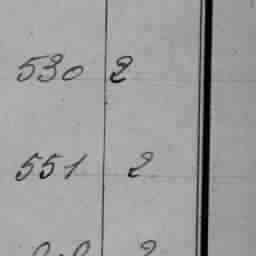 530 2
551 2